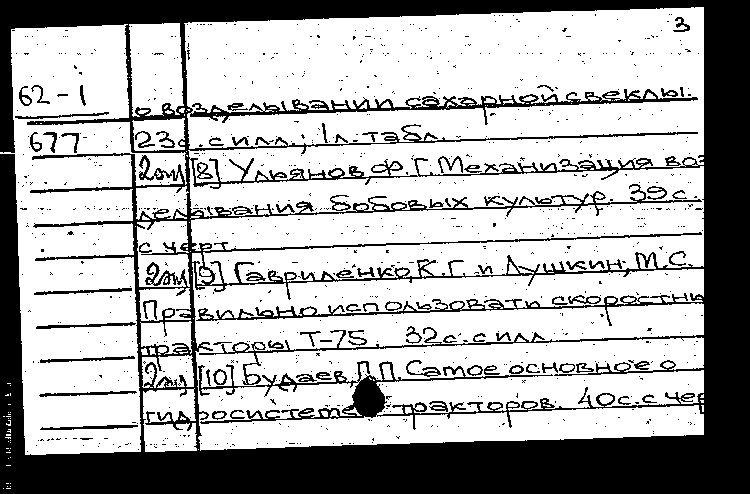 3
62-1
о возделывании сахарной свеклы.
677 23с. с илл.; 1л. табл.
2 экз [8] Ульянов, Ф.Г. Механизация воз
делывания бобовых культур. 39с.
с черт.
2 экз [9] Гавриленко, К.Г. и Душкин, М.С.
Правильно использовати скоростны
тракторы Т-75. 32с. с илл
2 экз [10] Будаев, П.П. Самое основное о
гидросистеме тракторов. 40с. с чер